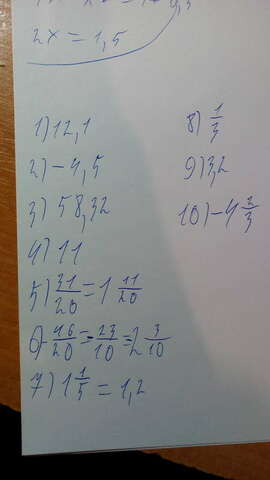 2x = 1,5
1) 12,1
2) -4,5
3) 58,32
4) 11
5) 31/20 = 1 11/20
6) -46/20 = -23/10 = -2 3/10
7) 1 1/5 = 1,2
8) 1/3
9) 3,2
10) -4 2/3